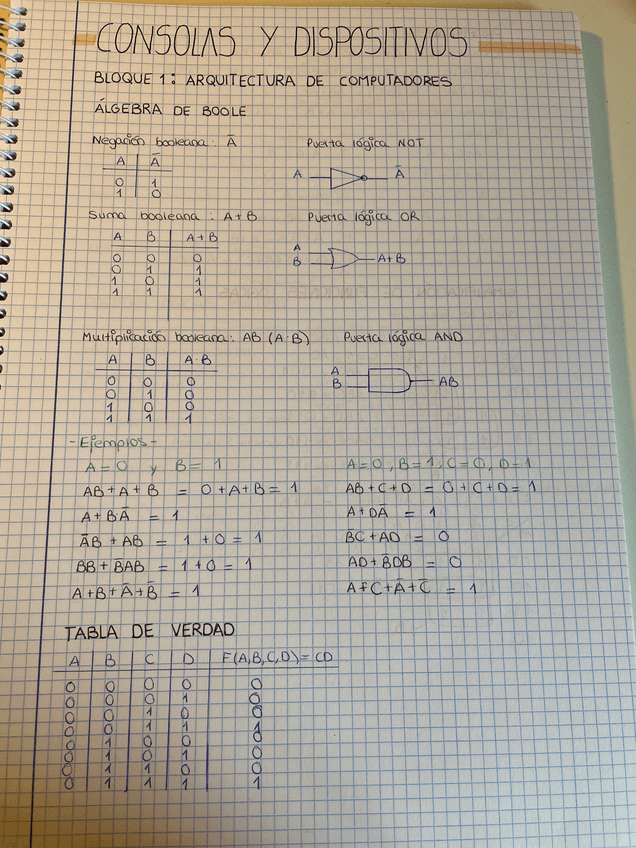 CONSOLAS Y DISPOSITIVOS
BLOQUE 1: ARQUITECTURA DE COMPUTADORES
ÁLGEBRA DE BOOLE
Negación booleana: Ā
Puerta lógica NOT
A Ā
0 1
1 0
A Ā
Suma booleana: A+B
Puerta lógica OR
A B A+B
0 0 0
0 1 1
1 0 1
1 1 1
A
B A+B
Multiplicación booleana: AB (A·B)
Puerta lógica AND
A B A·B
0 0 0
0 1 0
1 0 0
1 1 1
A
B AB
-Ejemplos-
A=0 y B=1
AB+A+B = 0+A+B = 1
A+B·Ā = 1
ĀB+AB = 1+0 = 1
BB+B̄AB = 1+0 = 1
A+B+Ā+B̄ = 1
A=0, B=1, C=0, D=1
AB+C+D = 0+C+D = 1
A+DĀ = 1
BC+AD = 0
AD+B̄DB = 0
A+C+Ā+C̄ = 1
TABLA DE VERDAD
A B C D F(A,B,C,D)=CD
0 0 0 0 0
0 0 0 1 0
0 0 1 0 0
0 0 1 1 1
0 1 0 0 0
0 1 0 1 0
0 1 1 0 0
0 1 1 1 1